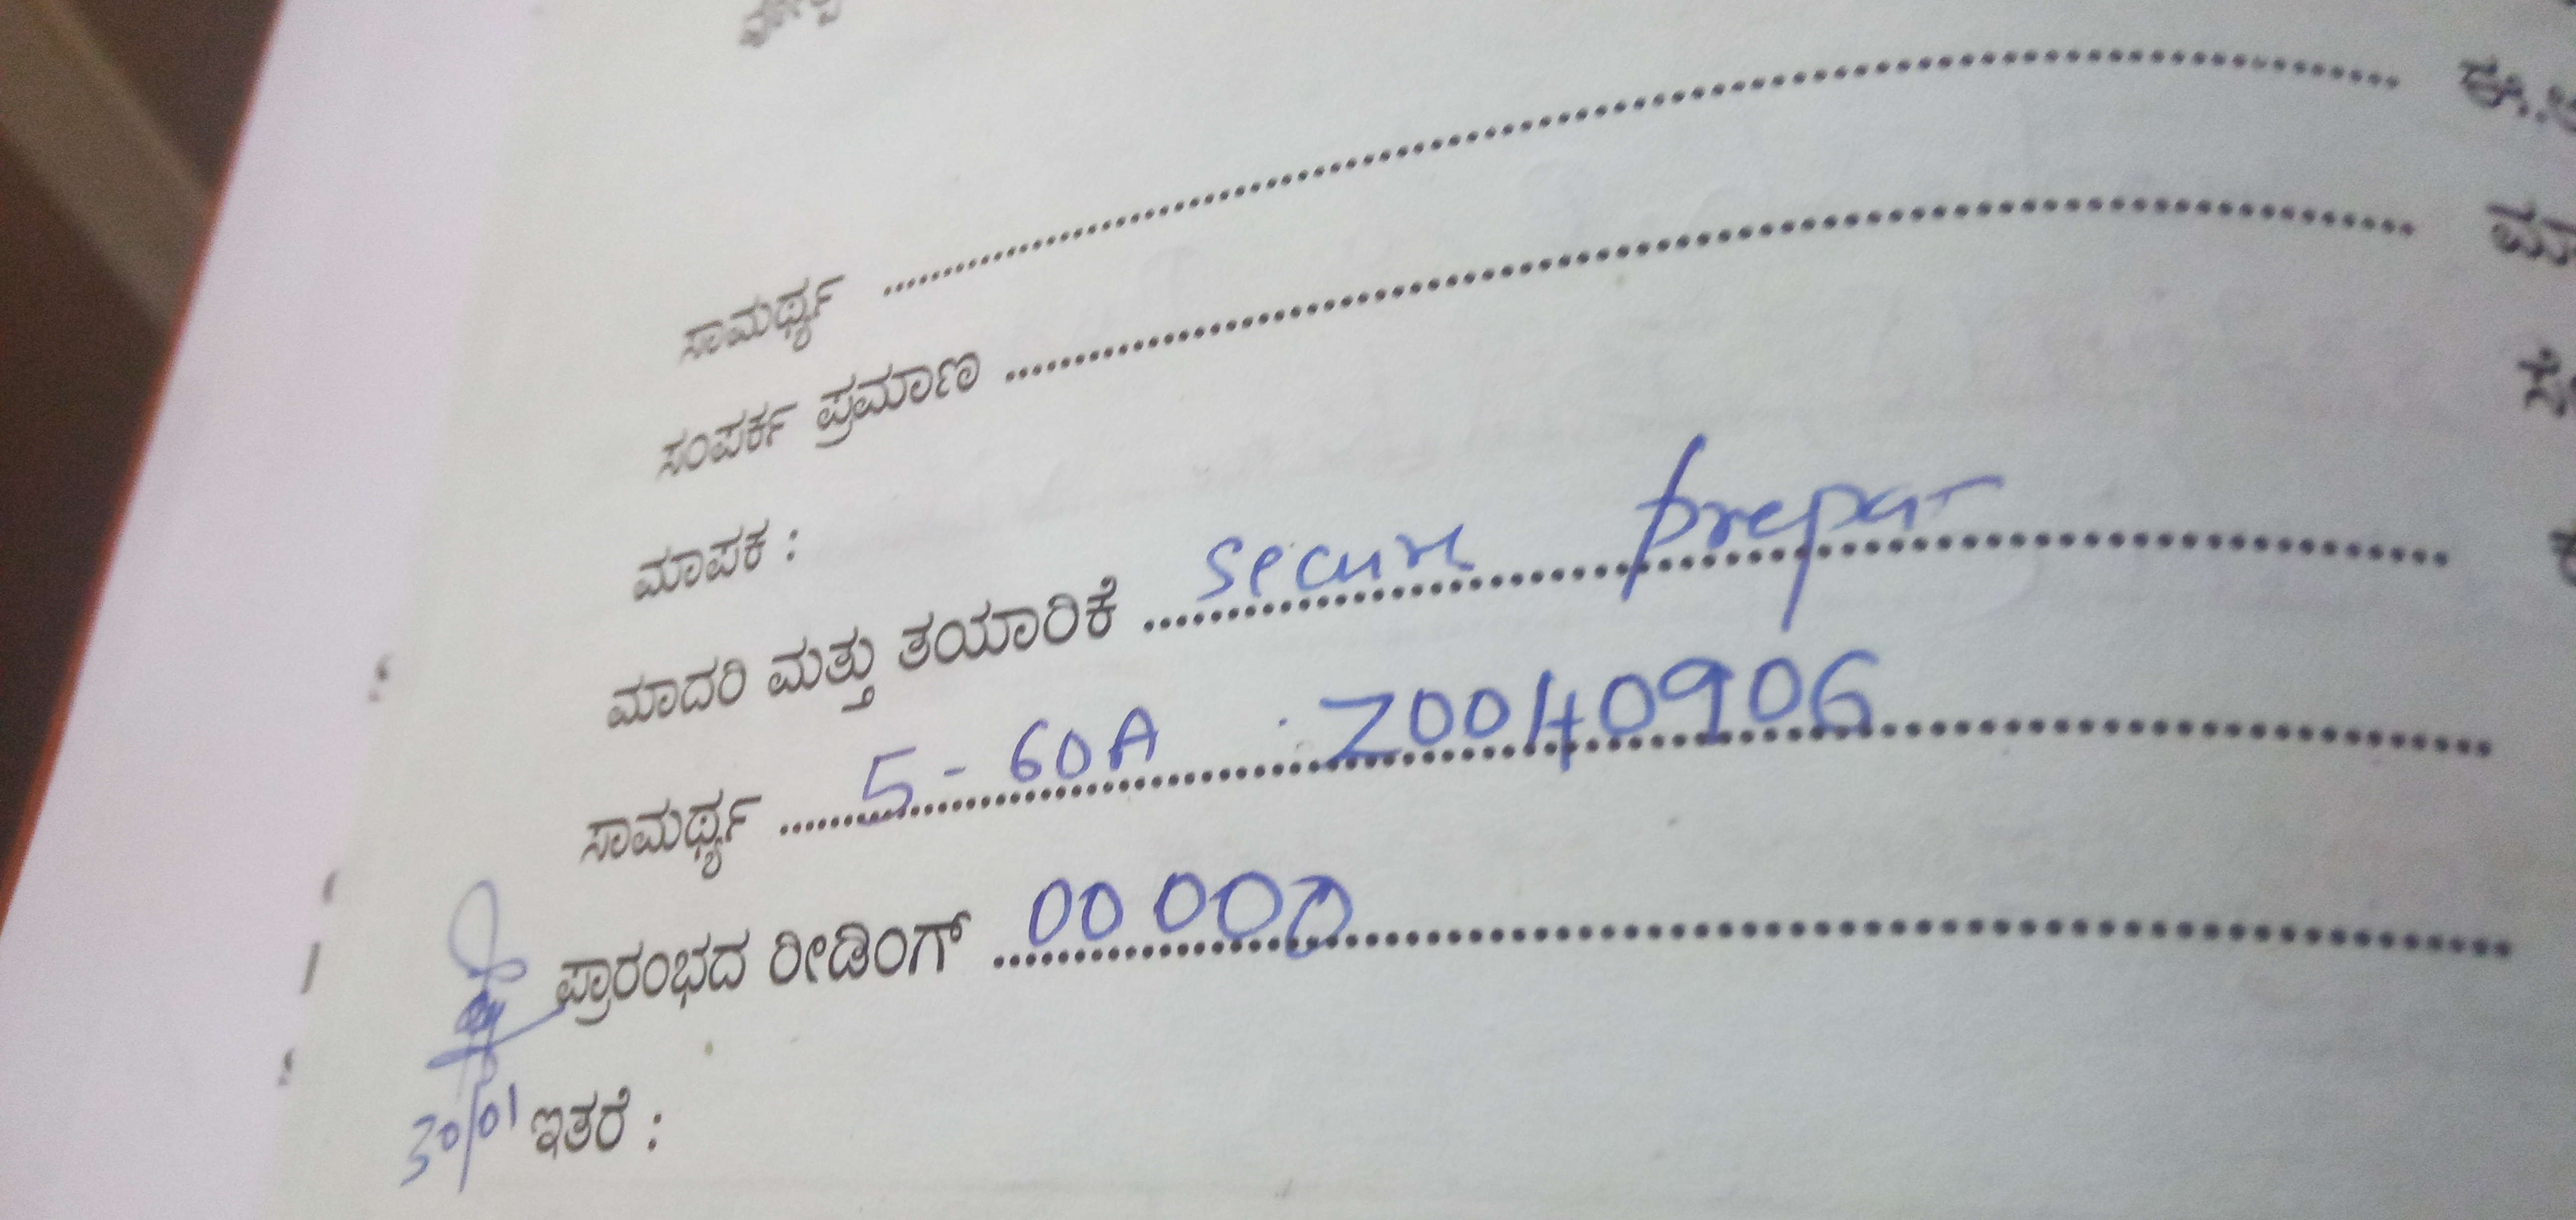 ಸಾಮರ್ಥ್ಯ ........................
ಸಂಪರ್ಕ ಪ್ರಮಾಣ ........................
ಮಾಪಕ :
ಮಾದರಿ ಮತ್ತು ತಯಾರಿಕೆ ... secure prepa
ಸಾಮರ್ಥ್ಯ ... 5 - 60A Z0040906
ಪ್ರಾರಂಭದ ರೀಡಿಂಗ್ ... 00000
30/01 ಇತರೆ :